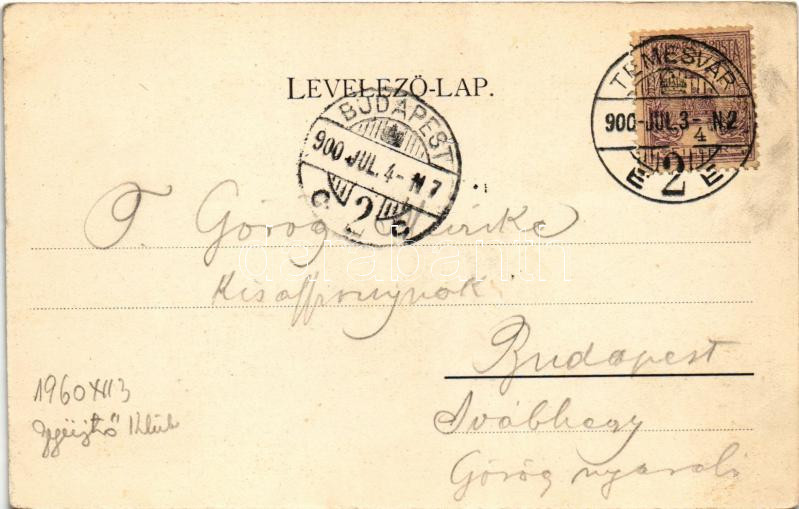 LEVELEZŐ-LAP.
TEMESVÁR
900-JUL.3- N.2
4
E 2 E
BUDAPEST
900 JUL.4- N 7
2
T. Görög
Kisasszonynak
Budapest
Svábhegy
Görög nyaraló
1960 XII 3
Gyűjtő Klub
darabanth